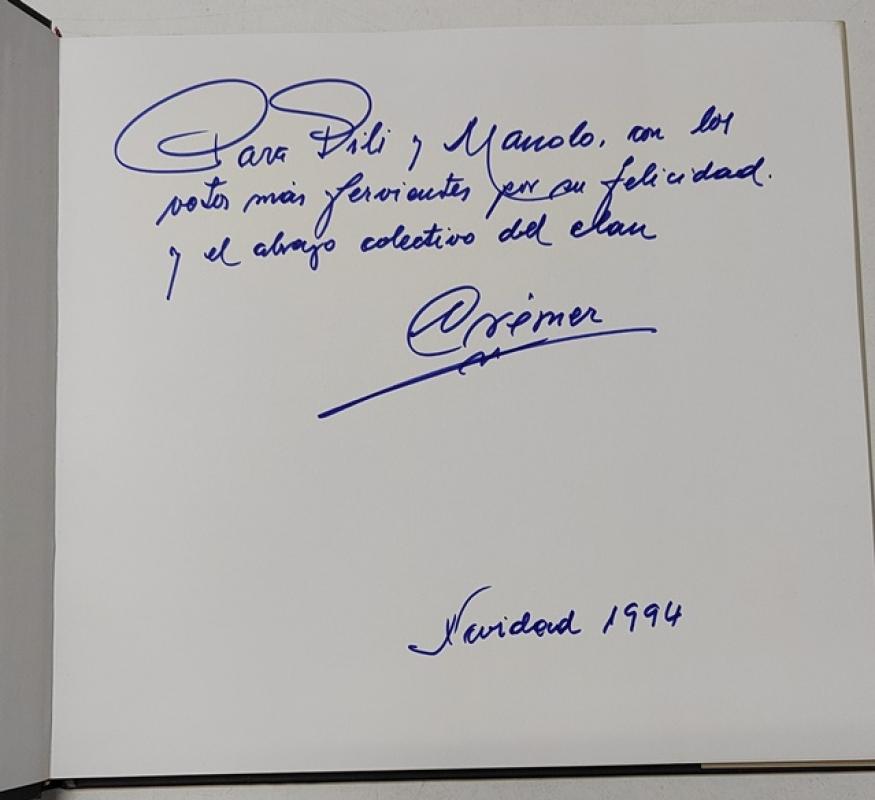 Para Pili y Manolo, con los
votos más fervientes por su felicidad.
y el abrazo colectivo del clan
Crémer
Navidad 1994